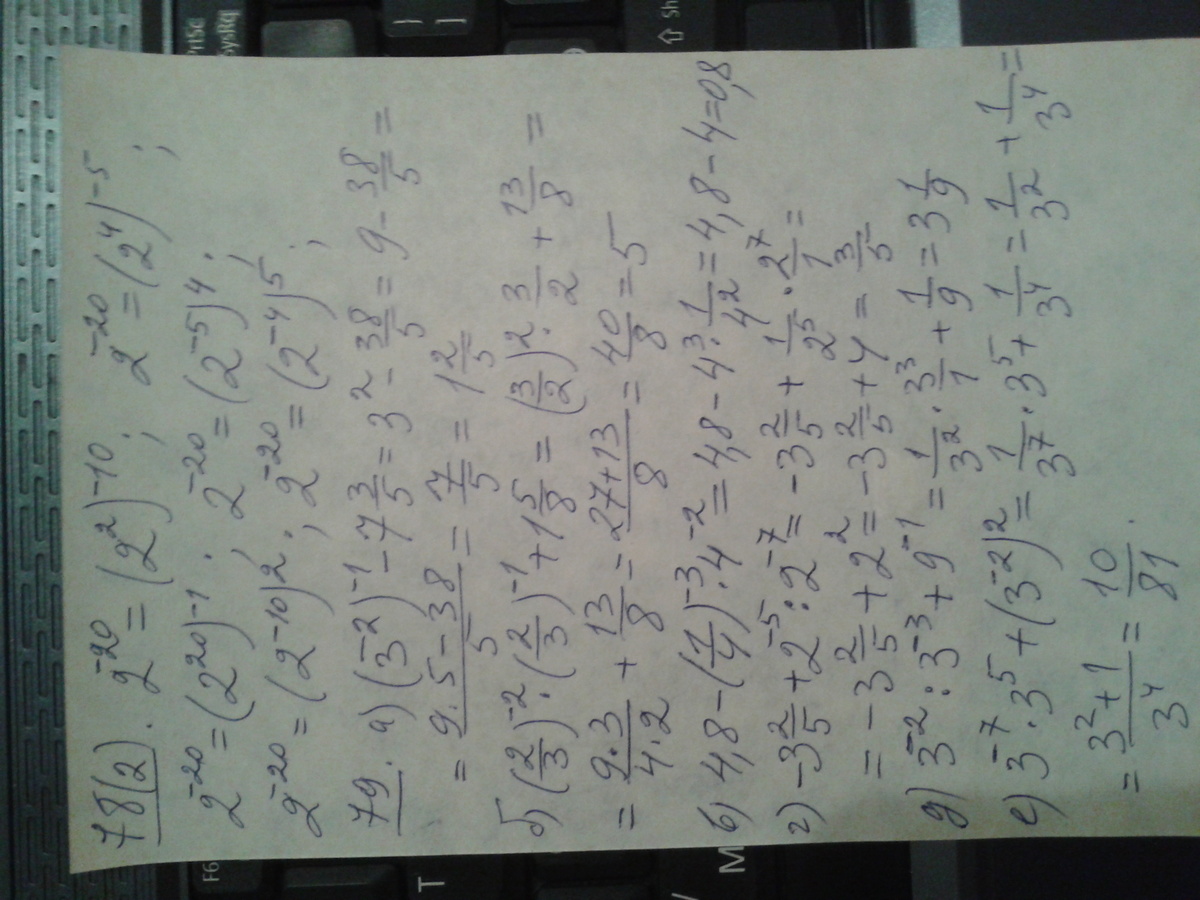 78(2). 2⁻²⁰ = (2²)⁻¹⁰; 2⁻²⁰ = (2⁴)⁻⁵;
2⁻²⁰ = (2²⁰)⁻¹; 2⁻²⁰ = (2⁻⁵)⁴;
2⁻²⁰ = (2⁻¹⁰)²; 2⁻²⁰ = (2⁻⁴)⁵;
79. а) (3⁻²)⁻¹ - 7 3/5 = 3² - 38/5 = 9 - 38/5 =
= (9·5-38)/5 = 7/5 = 1 2/5
б) (2/3)⁻² · (2/3)⁻¹ + 1 5/8 = (3/2)² · 3/2 + 13/8 =
= (9·3)/(4·2) + 13/8 = (27+13)/8 = 40/8 = 5
в) 4,8 - (1/4)⁻³ · 4⁻² = 4,8 - 4³ · 1/4² = 4,8 - 4 = 0,8
г) -3 2/5 + 2⁻⁵ : 2⁻⁷ = -3 2/5 + 1/2⁵ · 2⁷/1 =
= -3 2/5 + 2² = -3 2/5 + 4 = 3/5
д) 3⁻² : 3⁻³ + 9⁻¹ = 1/3² · 3³/1 + 1/9 = 3 1/9
е) 3⁻⁷ · 3⁵ + (3⁻²)² = 1/3⁷ · 3⁵ + 1/3⁴ = 1/3² + 1/3⁴ =
= (3²+1)/3⁴ = 10/81.
PrtSc
SysRq
Sh
F6
T
M